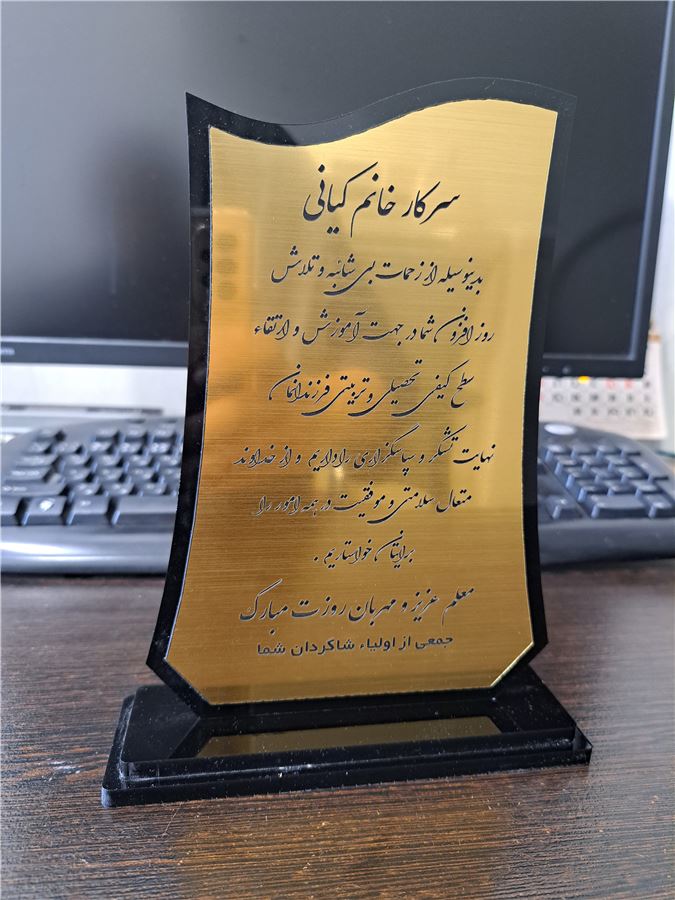 سرکار خانم کیانی
بدینوسیله از زحمات بی شائبه و تلاش
روز افزون شما در جهت آموزش و ارتقاء
سطح کیفی تحصیلی و تربیتی فرزندانمان
نهایت تشکر و سپاسگزاری را داریم و از خداوند
متعال سلامتی و موفقیت در همه امور را
برایتان خواستاریم .
معلم عزیز و مهربان روزت مبارک
جمعی از اولیاء شاگردان شما